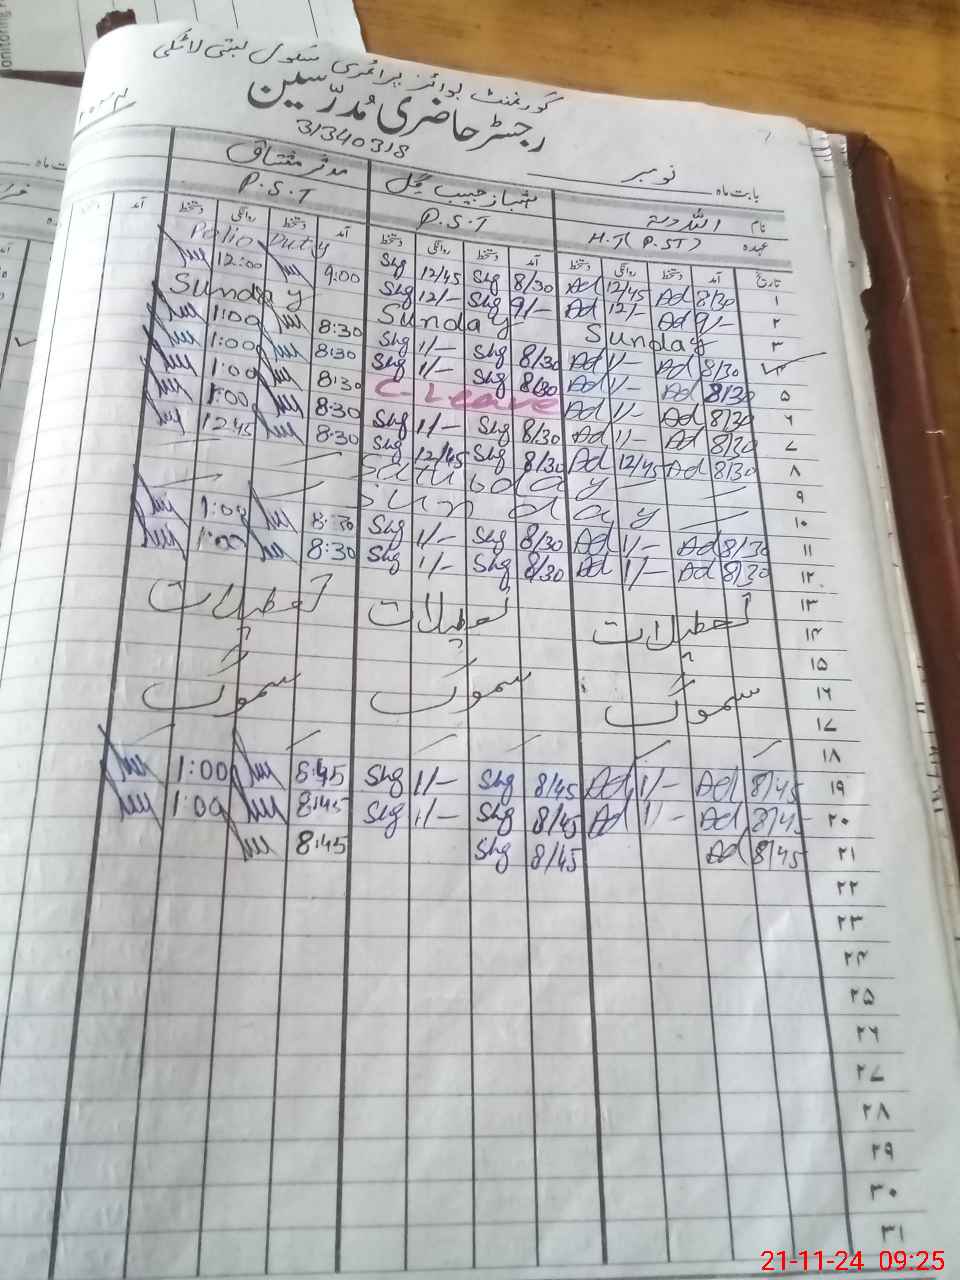 گورنمنٹ بوائز پرائمری سکول بستی لاٹکی
رجسٹر حاضری مُدرّسین
31340318
بابت ماہ نومبر
نام اللہ دتہ شہباز حبیب گل مدثر مشتاق
عہدہ H.T (P.ST) P.S.T P.S.T
تاریخ آمد دستخط روانگی دستخط آمد دستخط روانگی دستخط آمد دستخط روانگی دستخط آمد
۱ 8/30 Ad 12/45 Ad 8/30 Shg 12/45 Shg Polio Duty
۲ 9/- Ad 12/- Ad 9/- Shg 12/- Shg 9:00 12:00
۳ Sunday Sunday Sunday
۴ 8/30 Ad 1/- Ad 8/30 Shg 1/- Shg 8:30 1:00
۵ 8/30 Ad 1/- Ad 8/30 Shg 1/- Shg 8:30 1:00
۶ 8/30 Ad 1/- Ad C-Leave 8:30 1:00
۷ 8/30 Ad 1/- Ad 8/30 Shg 1/- Shg 8:30 1:00
۸ 8/30 Ad 12/45 Ad 8/30 Shg 12/45 Shg 8:30 12:45
۹ Saturday
۱۰ Sunday
۱۱ 8/30 Ad 1/- Ad 8/30 Shg 1/- Shg 8:30 1:00
۱۲ 8/30 Ad 1/- Ad 8/30 Shg 1/- Shg 8:30 1:00
۱۳
۱۴ تعطیلات تعطیلات تعطیلات
۱۵
۱۶ سموگ سموگ سموگ
۱۷
۱۸
۱۹ 8/45 Ad 1/- Ad 8/45 Shg 1/- Shg 8:45 1:00
۲۰ 8/45 Ad 1/- Ad 8/45 Shg 1/- Shg 8:45 1:00
۲۱ 8/45 Ad 8/45 Shg 8:45
۲۲
۲۳
۲۴
۲۵
۲۶
۲۷
۲۸
۲۹
۳۰
۳۱
21-11-24 09:25